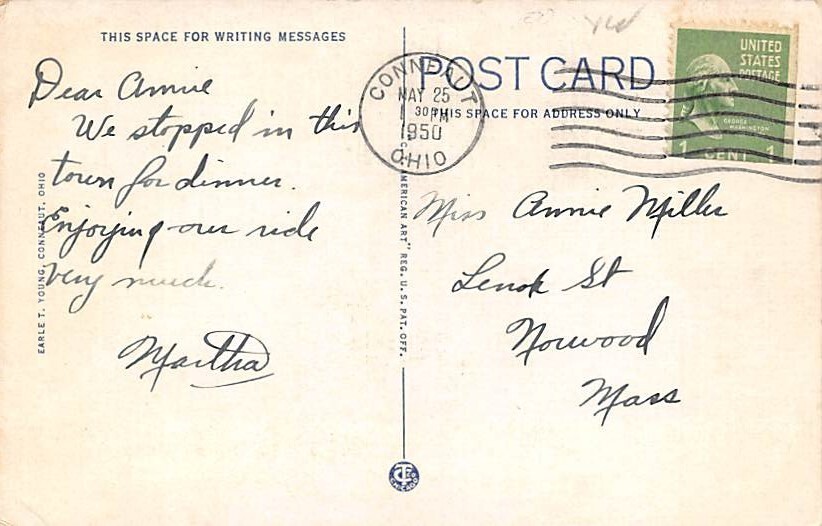 THIS SPACE FOR WRITING MESSAGES
Dear Annie
We stopped in this
town for dinner.
Enjoying our ride
very much.
Martha
EARLE T. YOUNG, CONNEAUT, OHIO
MERICAN ART" REG. U. S. PAT. OFF.
CHICAGO
POST CARD
THIS SPACE FOR ADDRESS ONLY
CONNEAUT
MAY 25
1950
OHIO
UNITED
STATES
POSTAGE
GEORGE
WASHINGTON
1 CENT 1
Miss Annie Miller
Lenox St
Norwood
Mass